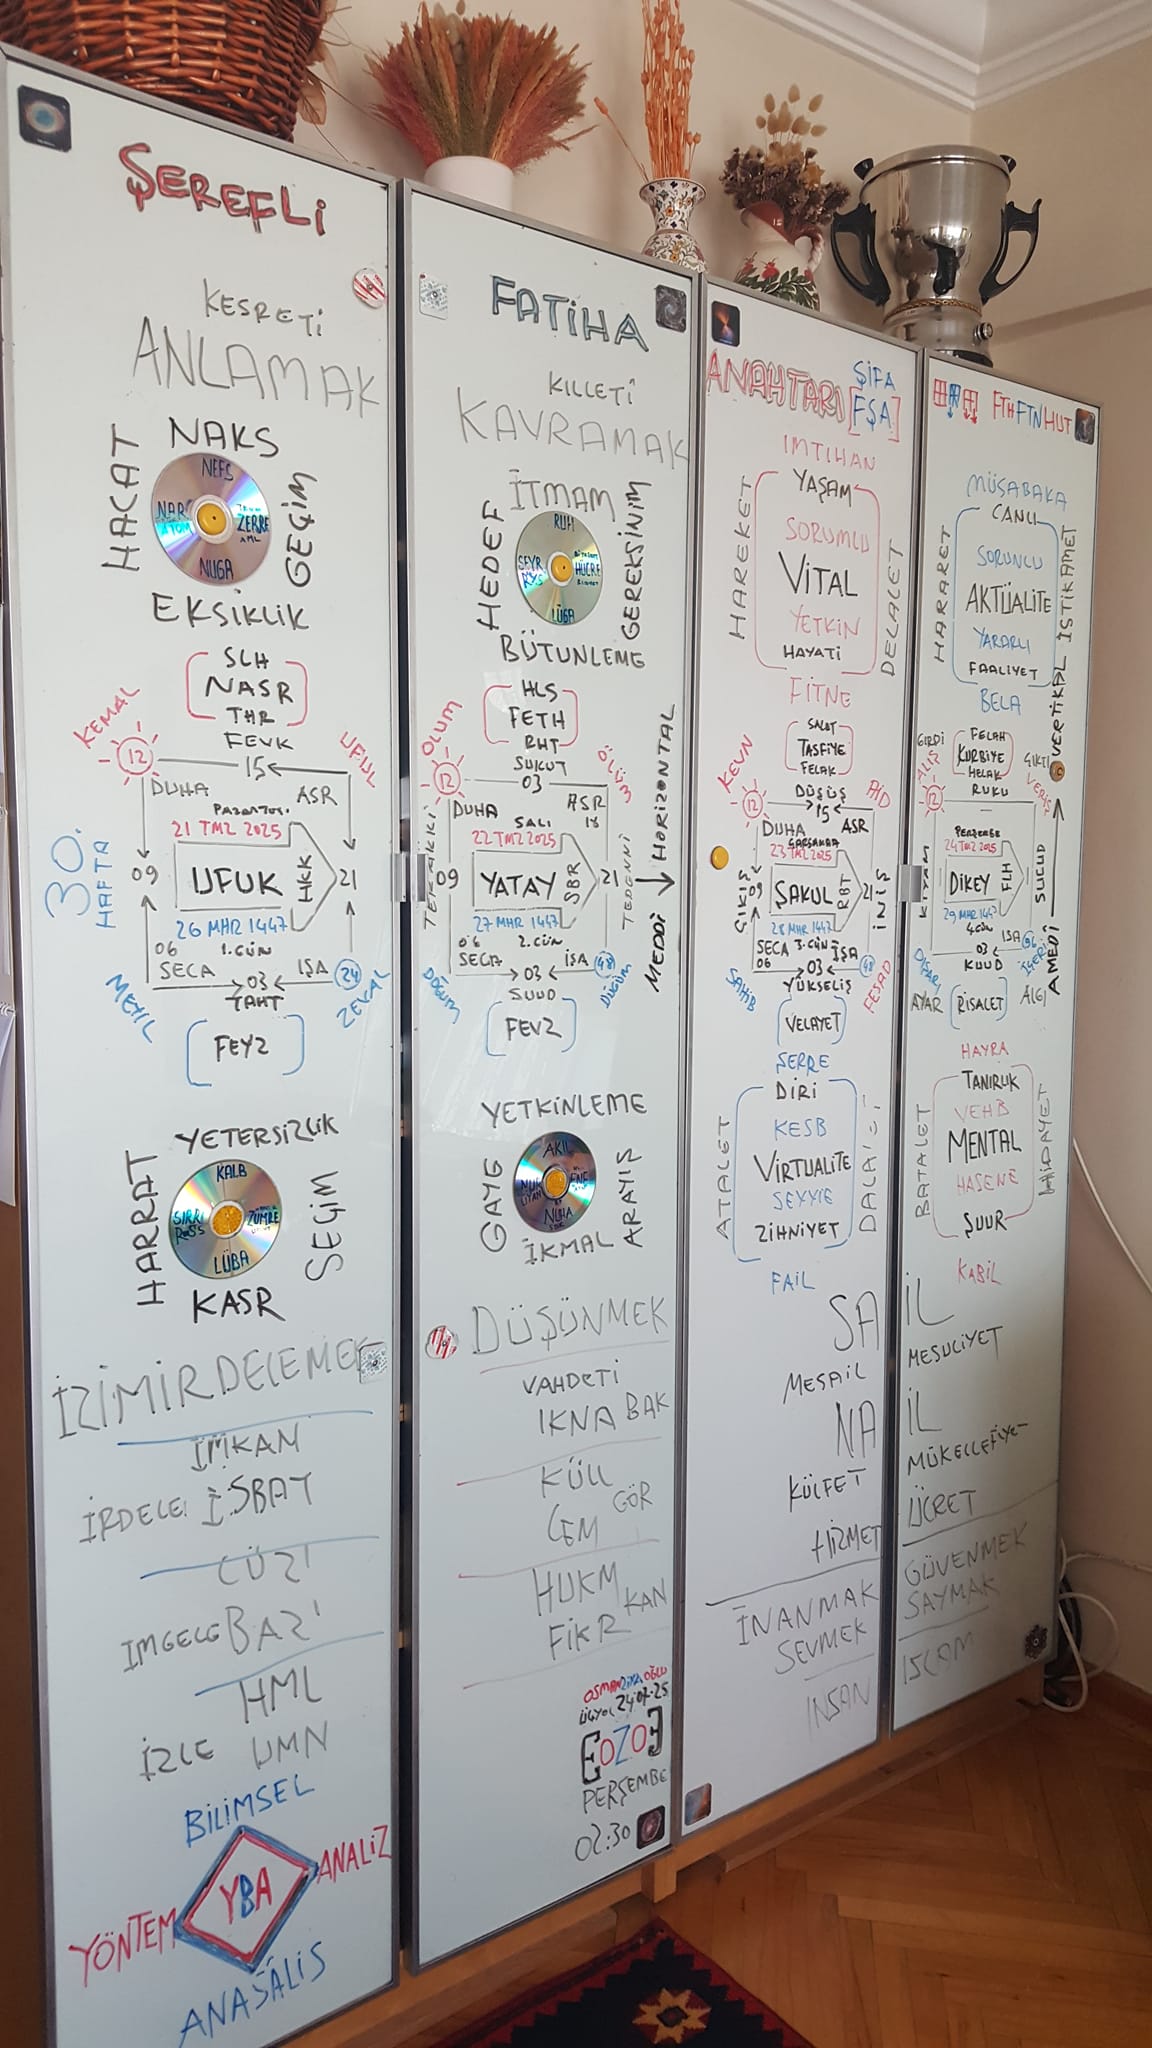 ŞEREFLİ
KESRETİ
ANLAMAK
NAKS
HACAT
NEFS
NAR
ATOM
ZERRE
NUGA
GEÇİM
EKSİKLİK
SLH
NASR
THR
FEVK
KEMAL
12
15
UFUL
DUHA
ASR
PAZARTESİ
21 TMZ 2025
30.
HAFTA
09
UFUK
HKK
21
26 MHR 1447
1.GÜN
06
SECA
03
İŞA
24
TAHT
MEYİL
ZEVAL
FEYZ
YETERSİZLİK
HARRAT
KALB
SIRRI
ZÜMRE
LÜBA
SEÇİM
KASR
İZİMİRDELEMEK
İMKAM
İRDELE
İSBAT
CÜZİ
İMGELE
BAZI
HML
İZLE
UMN
BİLİMSEL
YÖNTEM
YBA
ANALİZ
ANAŠALİS
FATİHA
KILLETİ
KAVRAMAK
İTMAM
HEDEF
RUH
SEYR
HÜCRE
LÜGA
GEREKSİNİM
BÜTÜNLEME
HLS
FETH
RHT
SUKUT
OLUM
12
03
ÖLÜM
DUHA
ASR
18
SALI
22 TMZ 2025
TERAKKİ
09
YATAY
SBR
21
TEDENNİ
HORİZONTAL
MEDDİ
27 MHR 1447
06
2.GÜN
SECA
03
İŞA
48
SUUD
DOĞUM
DÜĞÜM
FEVZ
YETKİNLEME
GAYE
AKIL
NUHA
ARAYIŞ
İKMAL
DÜŞÜNMEK
VAHDETİ
IKNA BAK
KÜLL
GÖR
CEM
HUKM
KAN
FİKR
OSMANZİYAOĞLU
24.07.25
EOZO3
PERŞEMBE
02:30
ANAHTARI
ŞİFA
[FŞA]
IMTIHAN
HAREKET
YAŞAM
SORUMLU
VİTAL
YETKİN
HAYATİ
DELALET
FİTNE
SALAT
TASFİYE
FELAK
DÜŞÜŞ
KEVN
12
15
DUHA
ASR
ÇARŞAMBA
23 TMZ 2025
ÇIKIŞ
09
ŞAKUL
RBT
21
İNİŞ
28 MHR 1447
SECA
3.GÜN
İŞA
06
03
48
YÜKSELİŞ
SAHİB
FESAD
VELAYET
ŞERRE
DİRİ
ATALET
KESB
VİRTUALİTE
SEYYİE
ZİHNİYET
FAİL
SA
MESAİL
NA
KÜLFET
HİZMET
İNANMAK
SEVMEK
INSAN
FTHFTNHUT
MÜSABAKA
CANLI
HARARET
SORUNLU
AKTÜALİTE
YARARLI
FAALİYET
İSTİKAMET
BELA
GİRDİ
FELAH
KURBİYE
HELAK
RUKU
ÇIKTI
ALIŞ
VERİŞ
12
VERTİKAL
PERŞEMBE
24 TMZ 2025
KIYAM
DİKEY
FLH
SUCUD
29 MHR 1447
4.GÜN
03
İŞA
KUUD
DIŞARI
İÇERİ
AMEDİ
AYAR
RİSALET
ALGI
HAYRA
TANIRLIK
BATALET
VEHB
MENTAL
HASENE
ŞUUR
HİDAYET
KABİL
İL
MESULİYET
İL
MÜKELLEFİYET
ÜCRET
GÜVENMEK
SAYMAK
ISLAM